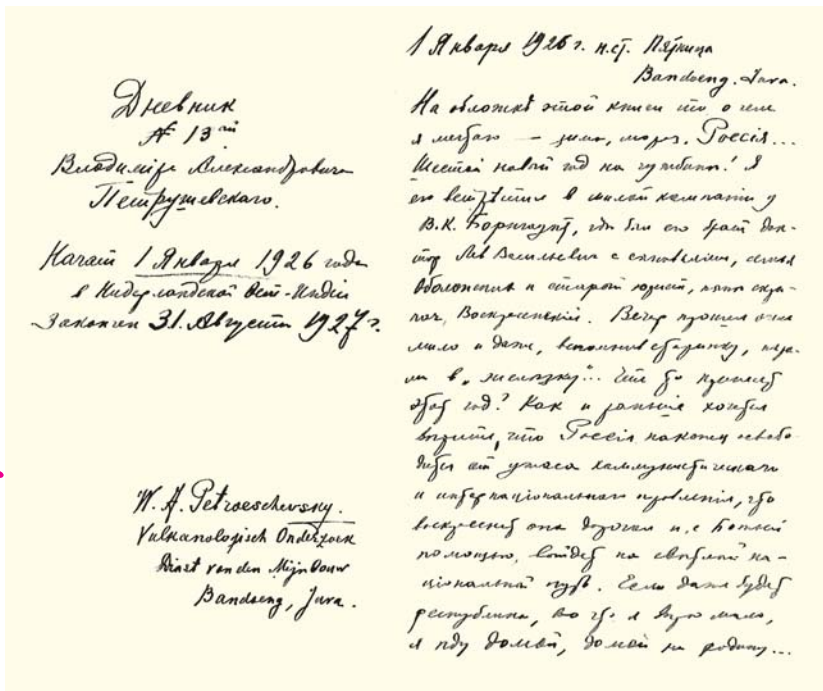 Дневник
№ 13ый
Владимира Александровича
Петрушевскаго.
Начат 1 Января 1926 года
в Нидерландской Ост-Индіи
Закончен 31. Августа 1927 г.
W. A. Petroeschevsky.
Vulkanologisch Onderzoek
Dienst van den Mijnbouw
Bandoeng, Java.
1 Января 1926 г. н.ст. Пятница
Bandoeng. Java.
На обложкѣ этой книги то о чем
я мечтаю — зима, мороз, Россія...
Шестой новый год на чужбинѣ! Я
его встрѣтил в милой компаніи у
В.К. Борнгаупт, гдѣ был его брат док-
тор Лев Васильевич с сыновьями, семья
Оболенских и старый юрист, ныне скри-
пач, Воскресенскій. Вечер прошел очень
мило и даже, вспомнив старинку, игра-
ли в „железку"... Что то принесет
этот год? Как и раньше хочется
вѣрить, что Россія наконец освобо-
дится от ужаса коммунистическаго
и интернаціональнаго правленія, что
воскреснет она дорогая и, с Божьей
помощью, выйдет на свѣтлый на-
ціональный путь. Если даже будет
республика, во что я вѣрю мало,
я иду домой, домой на родину...